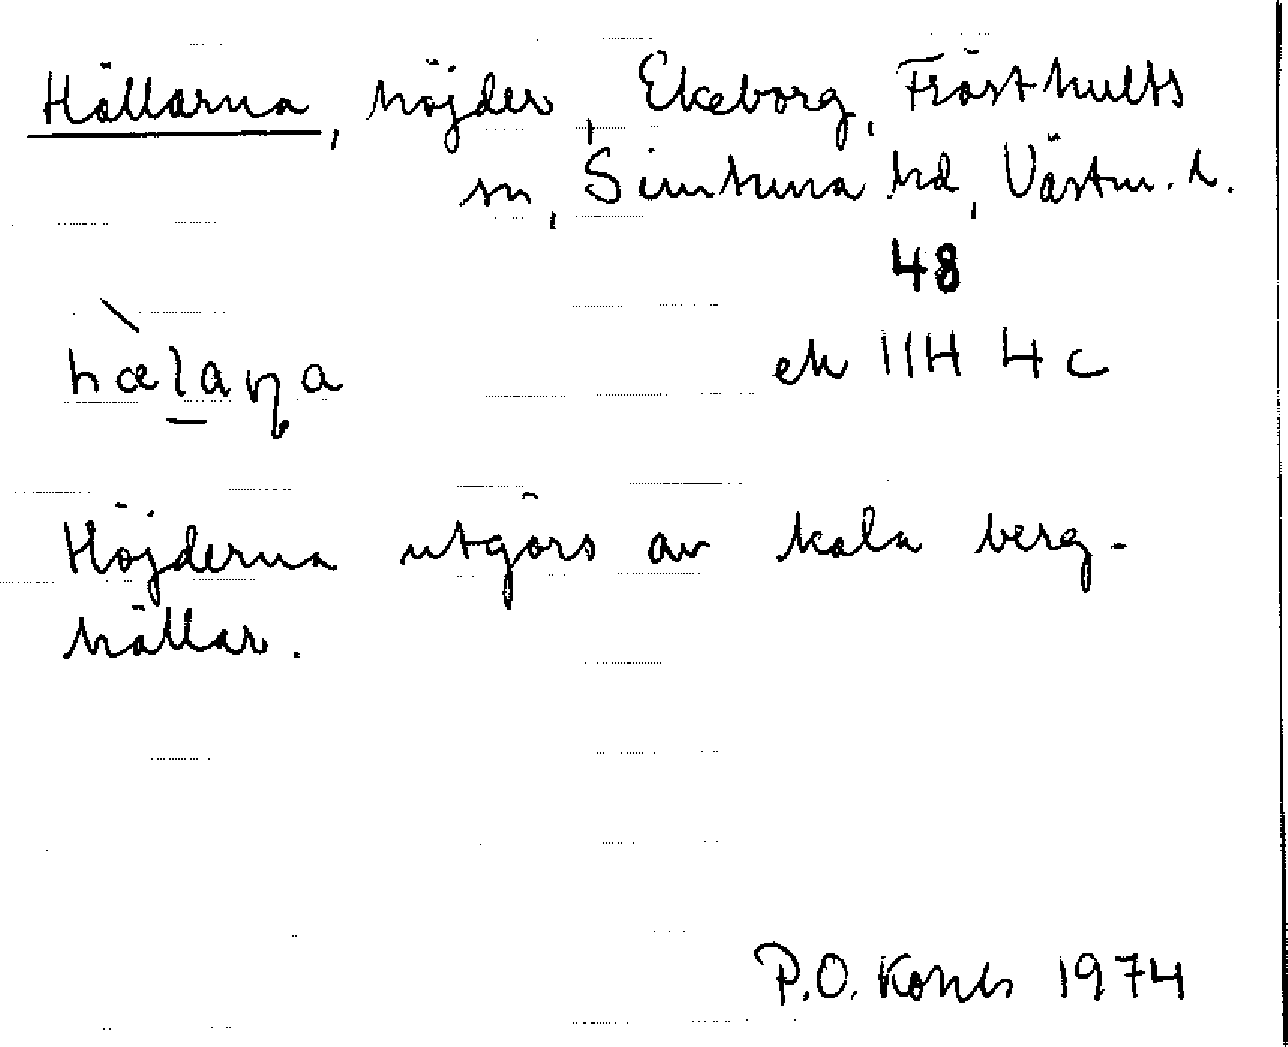 Hällarna, höjder, Ekeborg, Frösthults
sn, Simtuna hd, Västm. l.
48
hælaɳa
ek 11H 4c
Höjderna utgörs av kala berg-
hällar.
P.O. 1974